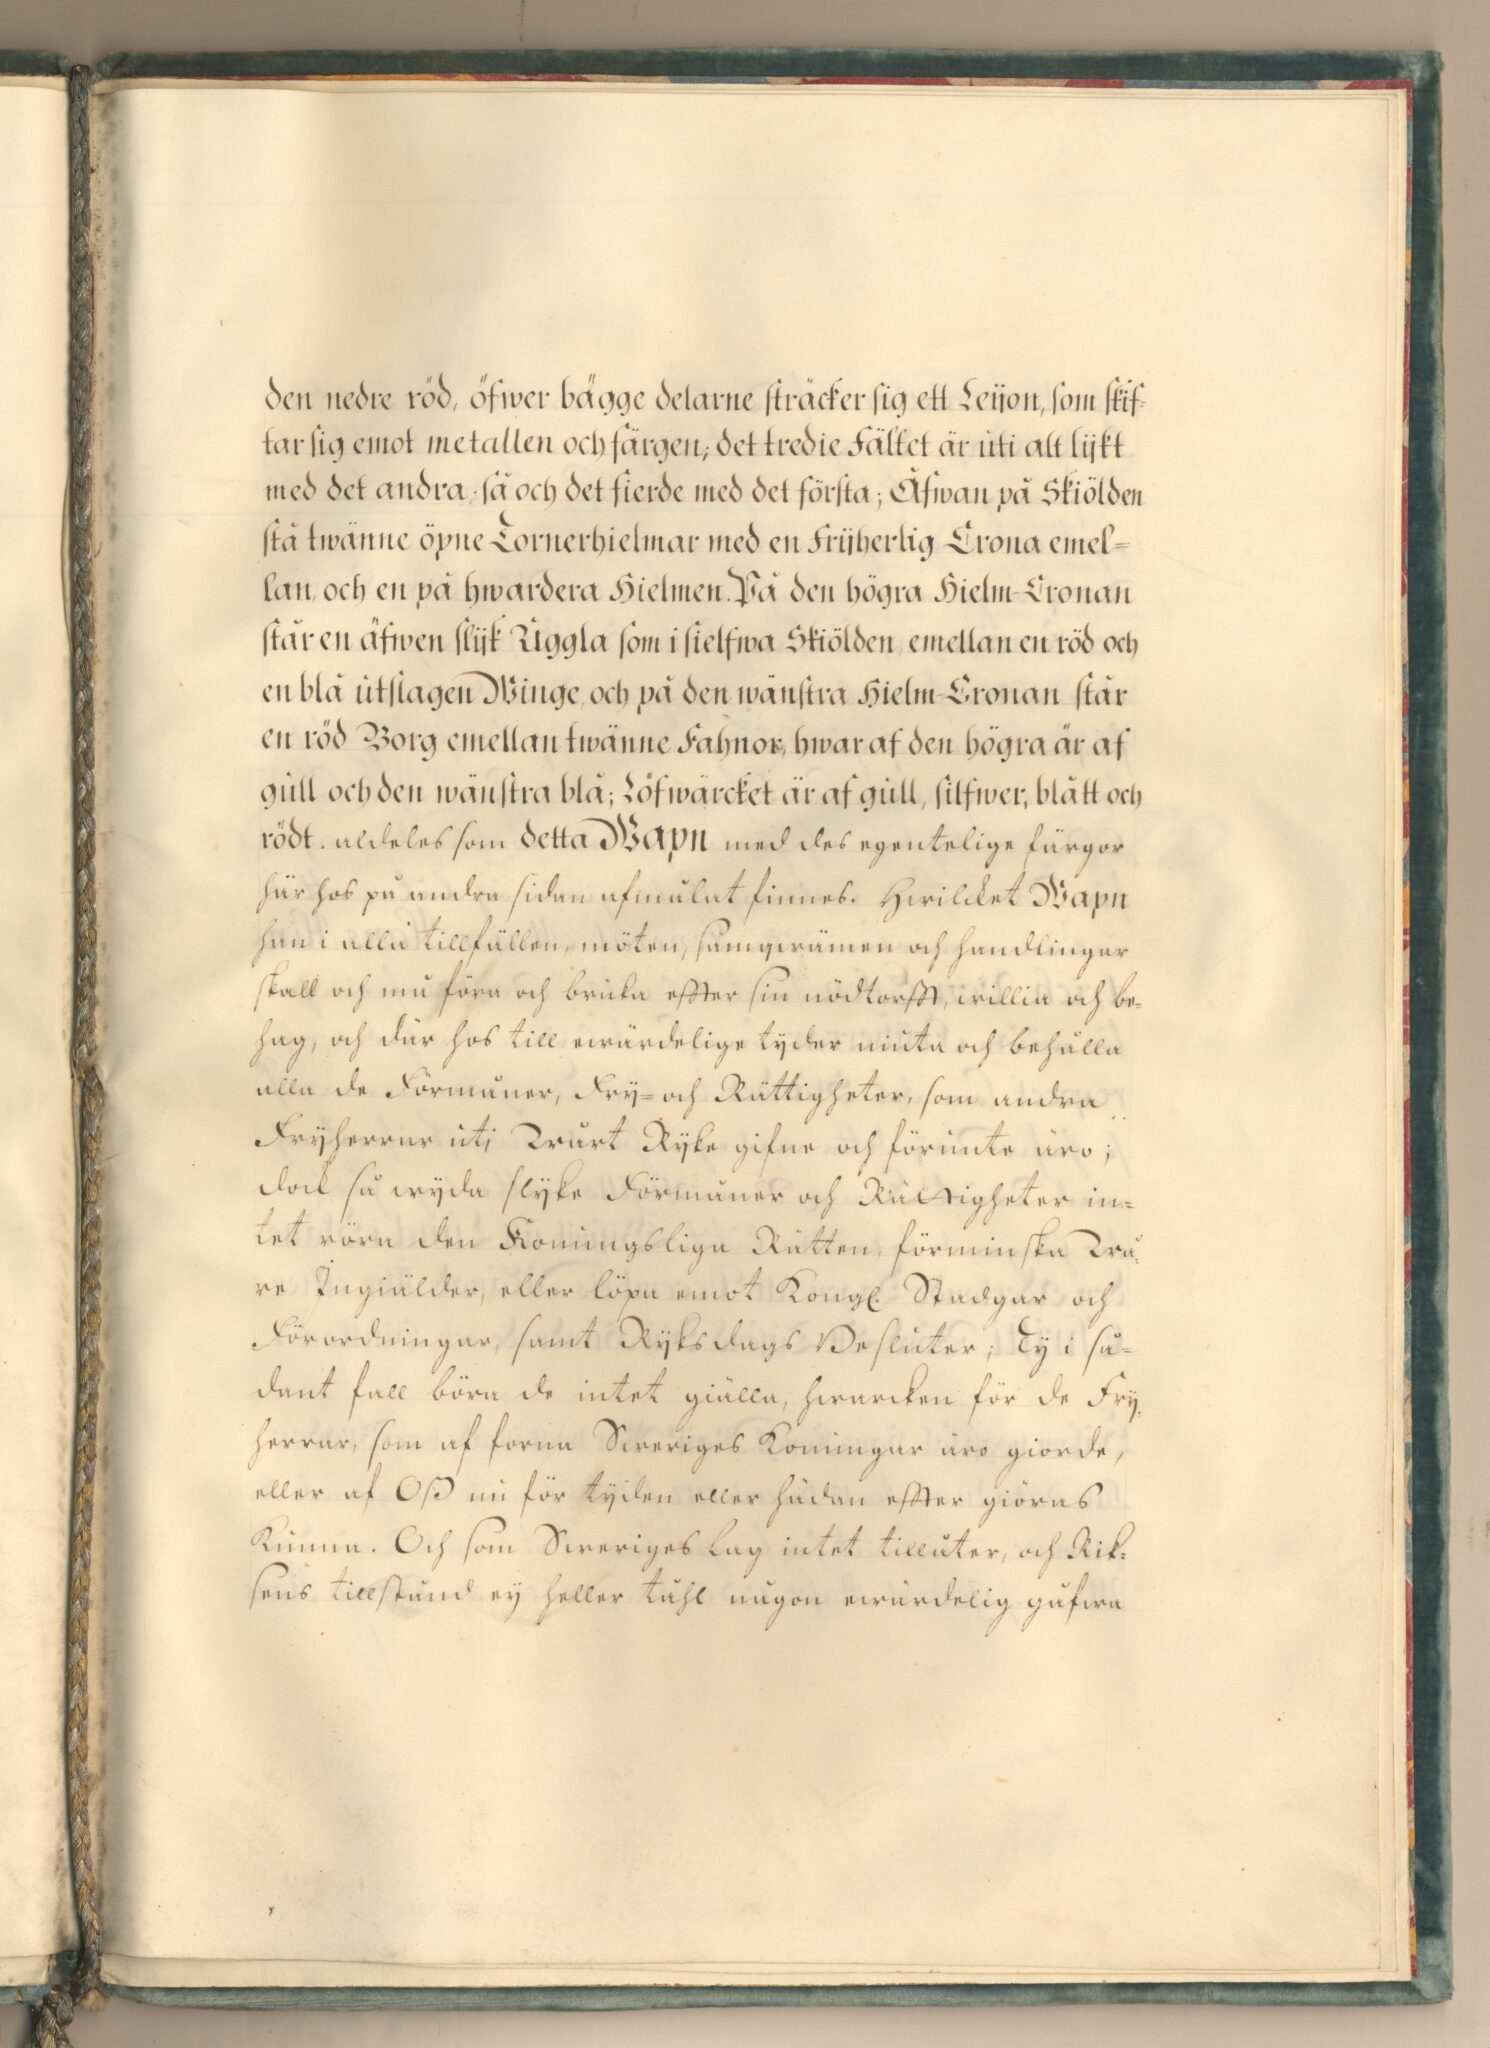 den nedre röd, öfwer bägge delarne sträcker sig ett Leijon, som skif-
tar sig emot metallen och färgen; det tredie Fältet är uti alt lijkt
med det andra, så och det fierde med det första; Åfwan på Skiölden
stå twänne öpne Tornerhielmar med en Frijherlig Crona emel=
lan, och en på hwardera Hielmen. På den högra Hielm-Cronan
står en äfwen slijk Uggla som i sielfwa Skiölden, emellan en röd och
en blå utslagen Winge, och på den wänstra Hielm-Cronan står
en röd Borg emellan twänne Fahnor, hwar af den högra är af
gull och den wänstra blå; Löfwärcket är af gull, silfwer, blått och
rödt. aldeles som detta Wapn med des egentelige färgor
här hos på andra sidan afmålat finnes. Hwilcket Wapn
han i alla tillfällen, möten, samqwämen och handlingar
skall och må föra och bruka effter sin nödtorfft, willia och be-
hag, och där hos till ewärdelige tyder niuta och behålla
alla de Förmåner, Fry= och Rättigheter, som andra
Fryherrar uti Wårt Ryke gifne och förunte äro;
dock så wyda slyke Förmåner och Rättigheter in=
tet röra den Koningsliga Rätten, förminska Wå-
re Ingiälder, eller löpa emot Kongl. Stadgar och
Förordningar, samt Ryksdags Besluter; Ty i så=
dant fall böra de intet giälla, hwarcken för de Fry-
herrar, som af forna Sweriges Koningar äro giorde,
eller af Oß nu för tyden eller hädan effter giöras
Kunna. Och som Sweriges Lag intet tillåter, och Rik-
sens tillstånd ey heller tåhl någon ewärdelig gåfwa